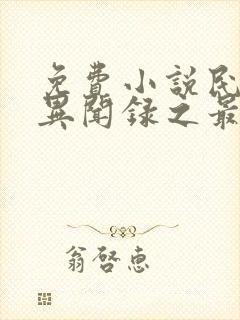 免費小說民
異聞錄之最
翁啓惠